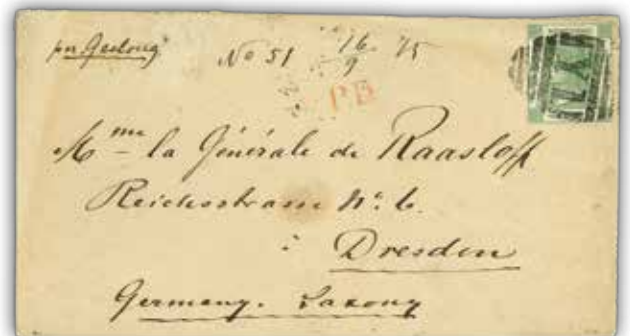 per Geelong No 51 16/9 75
P.D.
Mme la Générale de Raasloff
Reichsstrasse No 6.
à Dresden
Germany. Saxony